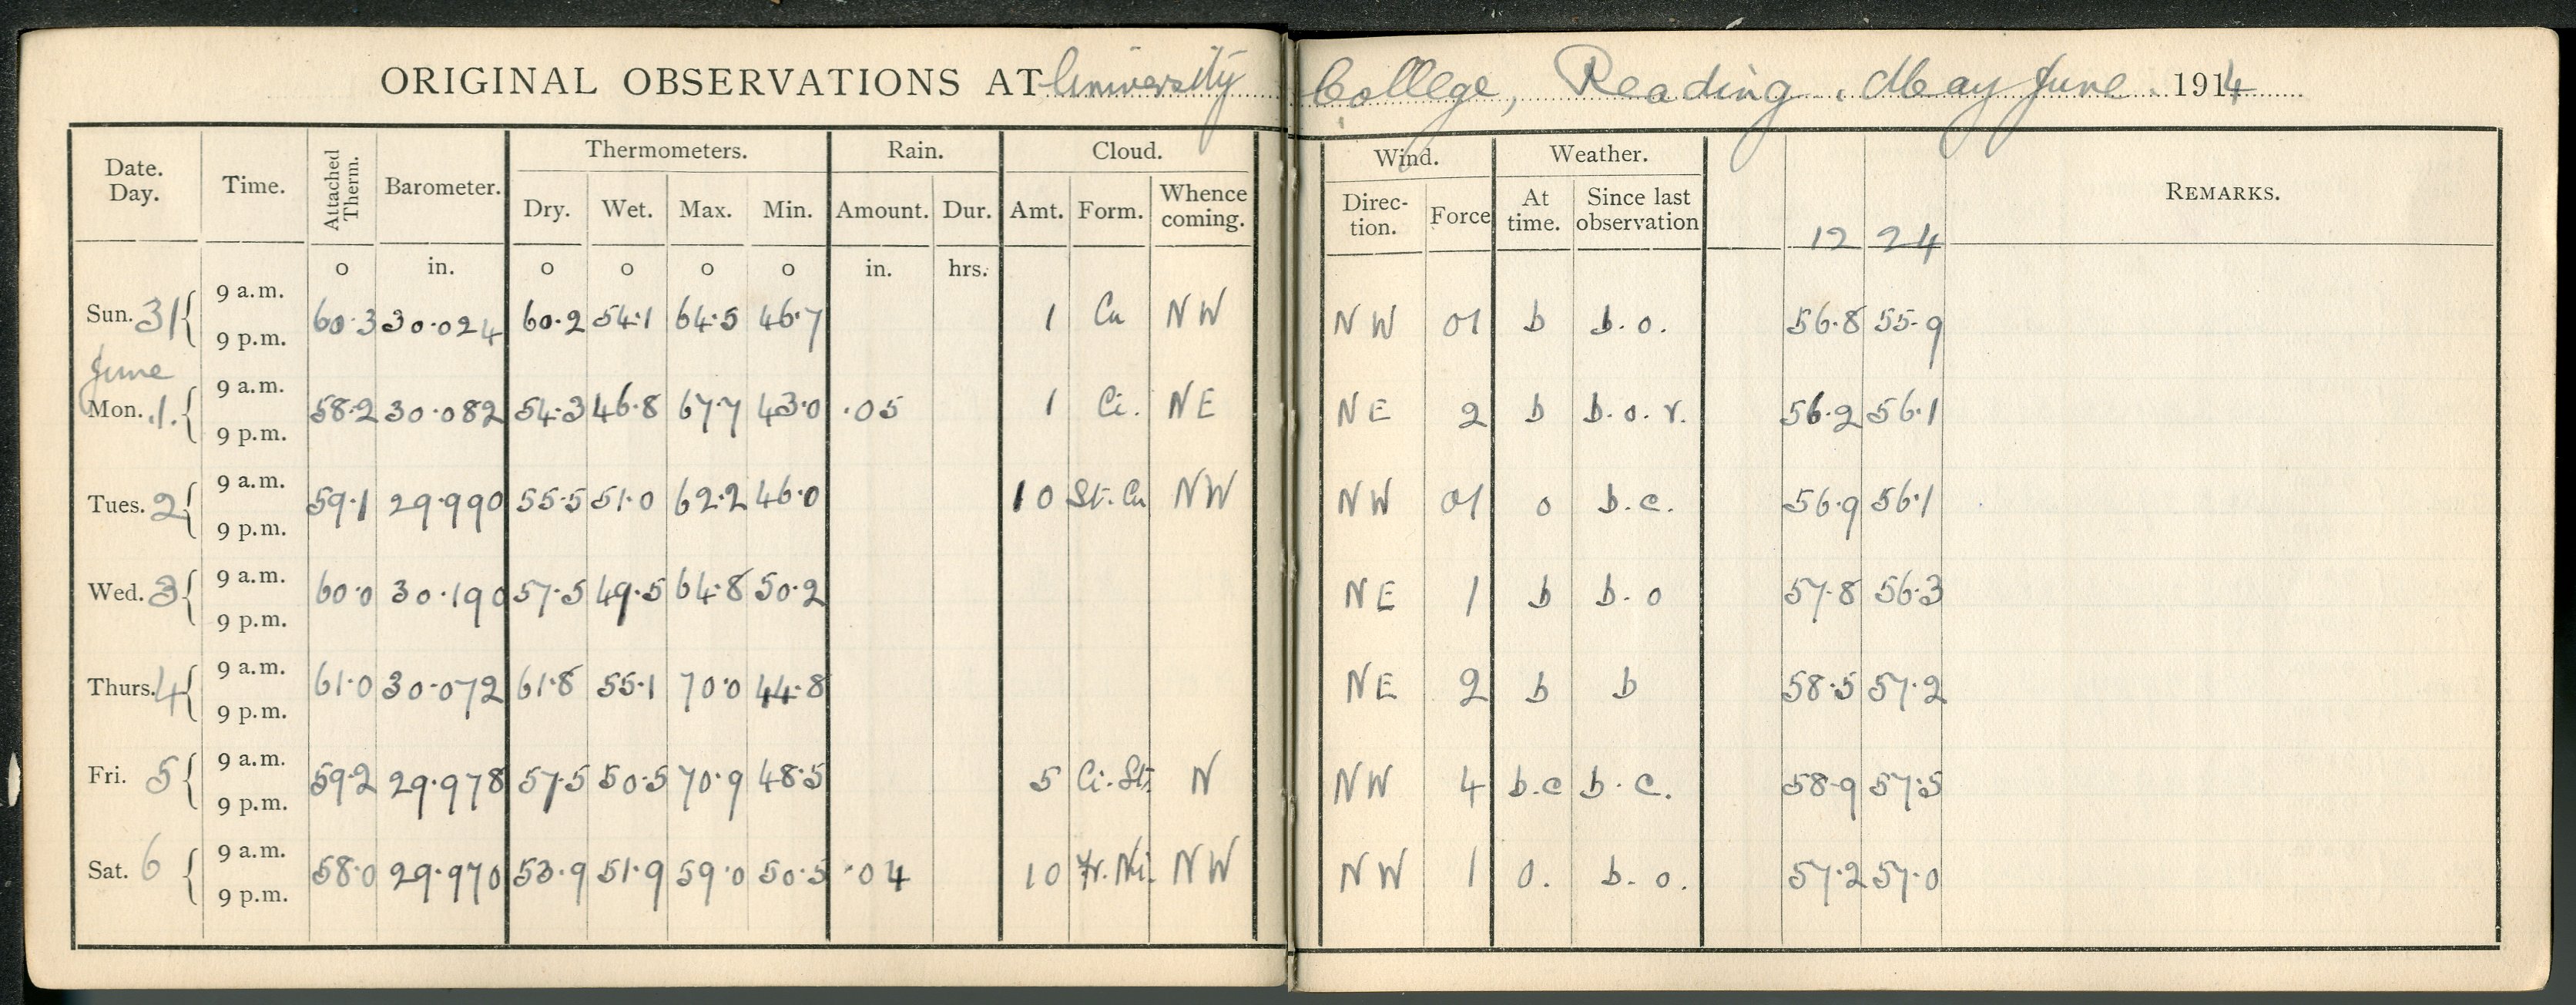 ORIGINAL OBSERVATIONS AT University College, Reading. May June. 1914
Date. Day. Time. Attached Therm. Barometer. Thermometers. Rain. Cloud. Wind. Weather. REMARKS.
Dry. Wet. Max. Min. Amount. Dur. Amt. Form. Whence coming. Direc- tion. Force At time. Since last observation 12 24
o in. o o o o in. hrs.
9 a.m.
Sun. 31 60.3 30.024 60.2 54.1 64.5 46.7 1 Cu NW NW 01 b b.o. 56.8 55.9
9 p.m.
June
9 a.m.
Mon. 1. 58.2 30.082 54.3 46.8 67.7 43.0 .05 1 Ci. NE NE 2 b b.o.r. 56.2 56.1
9 p.m.
9 a.m.
Tues. 2 59.1 29.990 55.5 51.0 62.2 46.0 10 St.Cu NW NW 01 o b.c. 56.9 56.1
9 p.m.
9 a.m.
Wed. 3 60.0 30.190 57.5 49.5 64.8 50.2 NE 1 b b.o 57.8 56.3
9 p.m.
9 a.m.
Thurs. 4 61.0 30.072 61.8 55.1 70.0 44.8 NE 2 b b 58.5 57.2
9 p.m.
9 a.m.
Fri. 5 59.2 29.978 57.5 50.5 70.9 48.5 5 Ci.St. N NW 4 b.c b.c. 58.9 57.5
9 p.m.
9 a.m.
Sat. 6 58.0 29.970 53.9 51.9 59.0 50.5 .04 10 Fr.Ni. NW NW 1 o. b.o. 57.2 57.0
9 p.m.